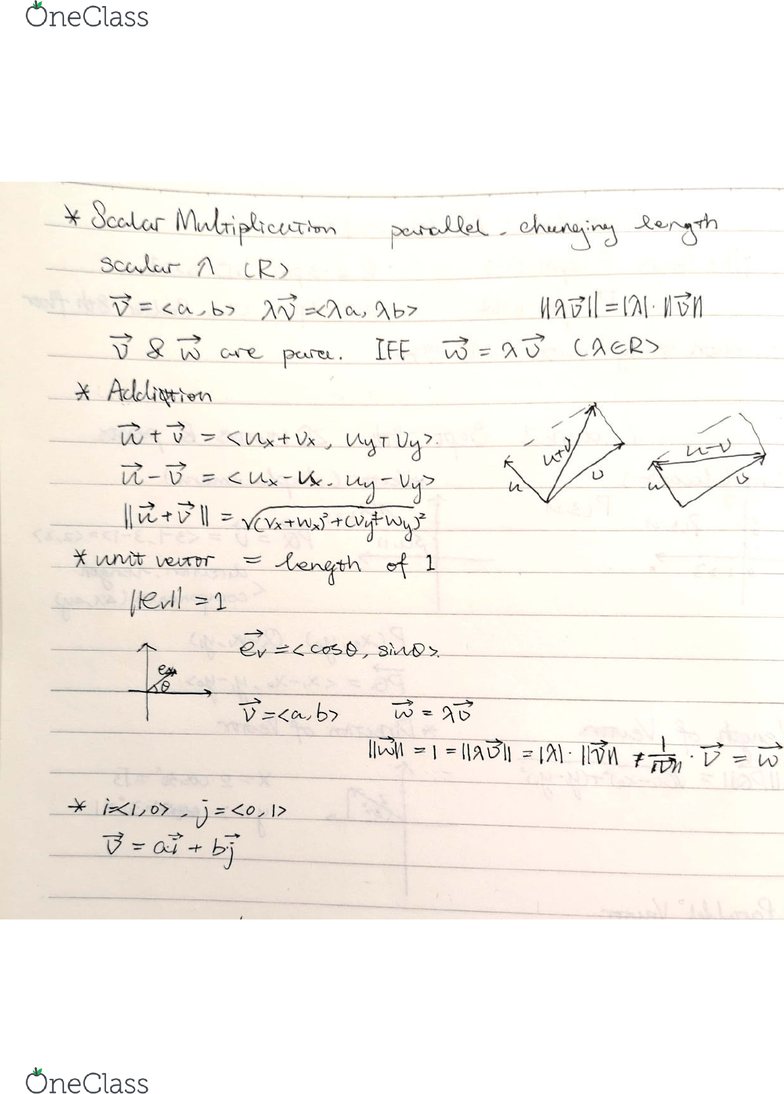 OneClass
* Scalar Multiplication parallel - changing length
scalar λ (R)
v⃗ = <a, b> λv⃗ = <λa, λb> ||λv⃗|| = |λ|· ||v⃗||
v⃗ & w⃗ are para. IFF w⃗ = λv⃗ (λ∈R)
* Addition
u⃗ + v⃗ = <ux + vx, uy + vy>.
u⃗ - v⃗ = <ux - vx, uy - vy>
||u⃗ + v⃗|| = √(vx+wx)²+(vy+wy)²
u
u+v
v
u
u-v
v
* unit vector = length of 1
||ev|| = 1
e⃗v = <cosθ, sinθ>.
θ
v⃗ = <a, b> w⃗ = λv⃗
||w⃗|| = 1 = ||λv⃗|| = |λ|· ||v⃗|| 1/||v⃗|| · v⃗ = w⃗
* i=<1,0>, j = <0,1>
v⃗ = ai⃗ + bj⃗
OneClass